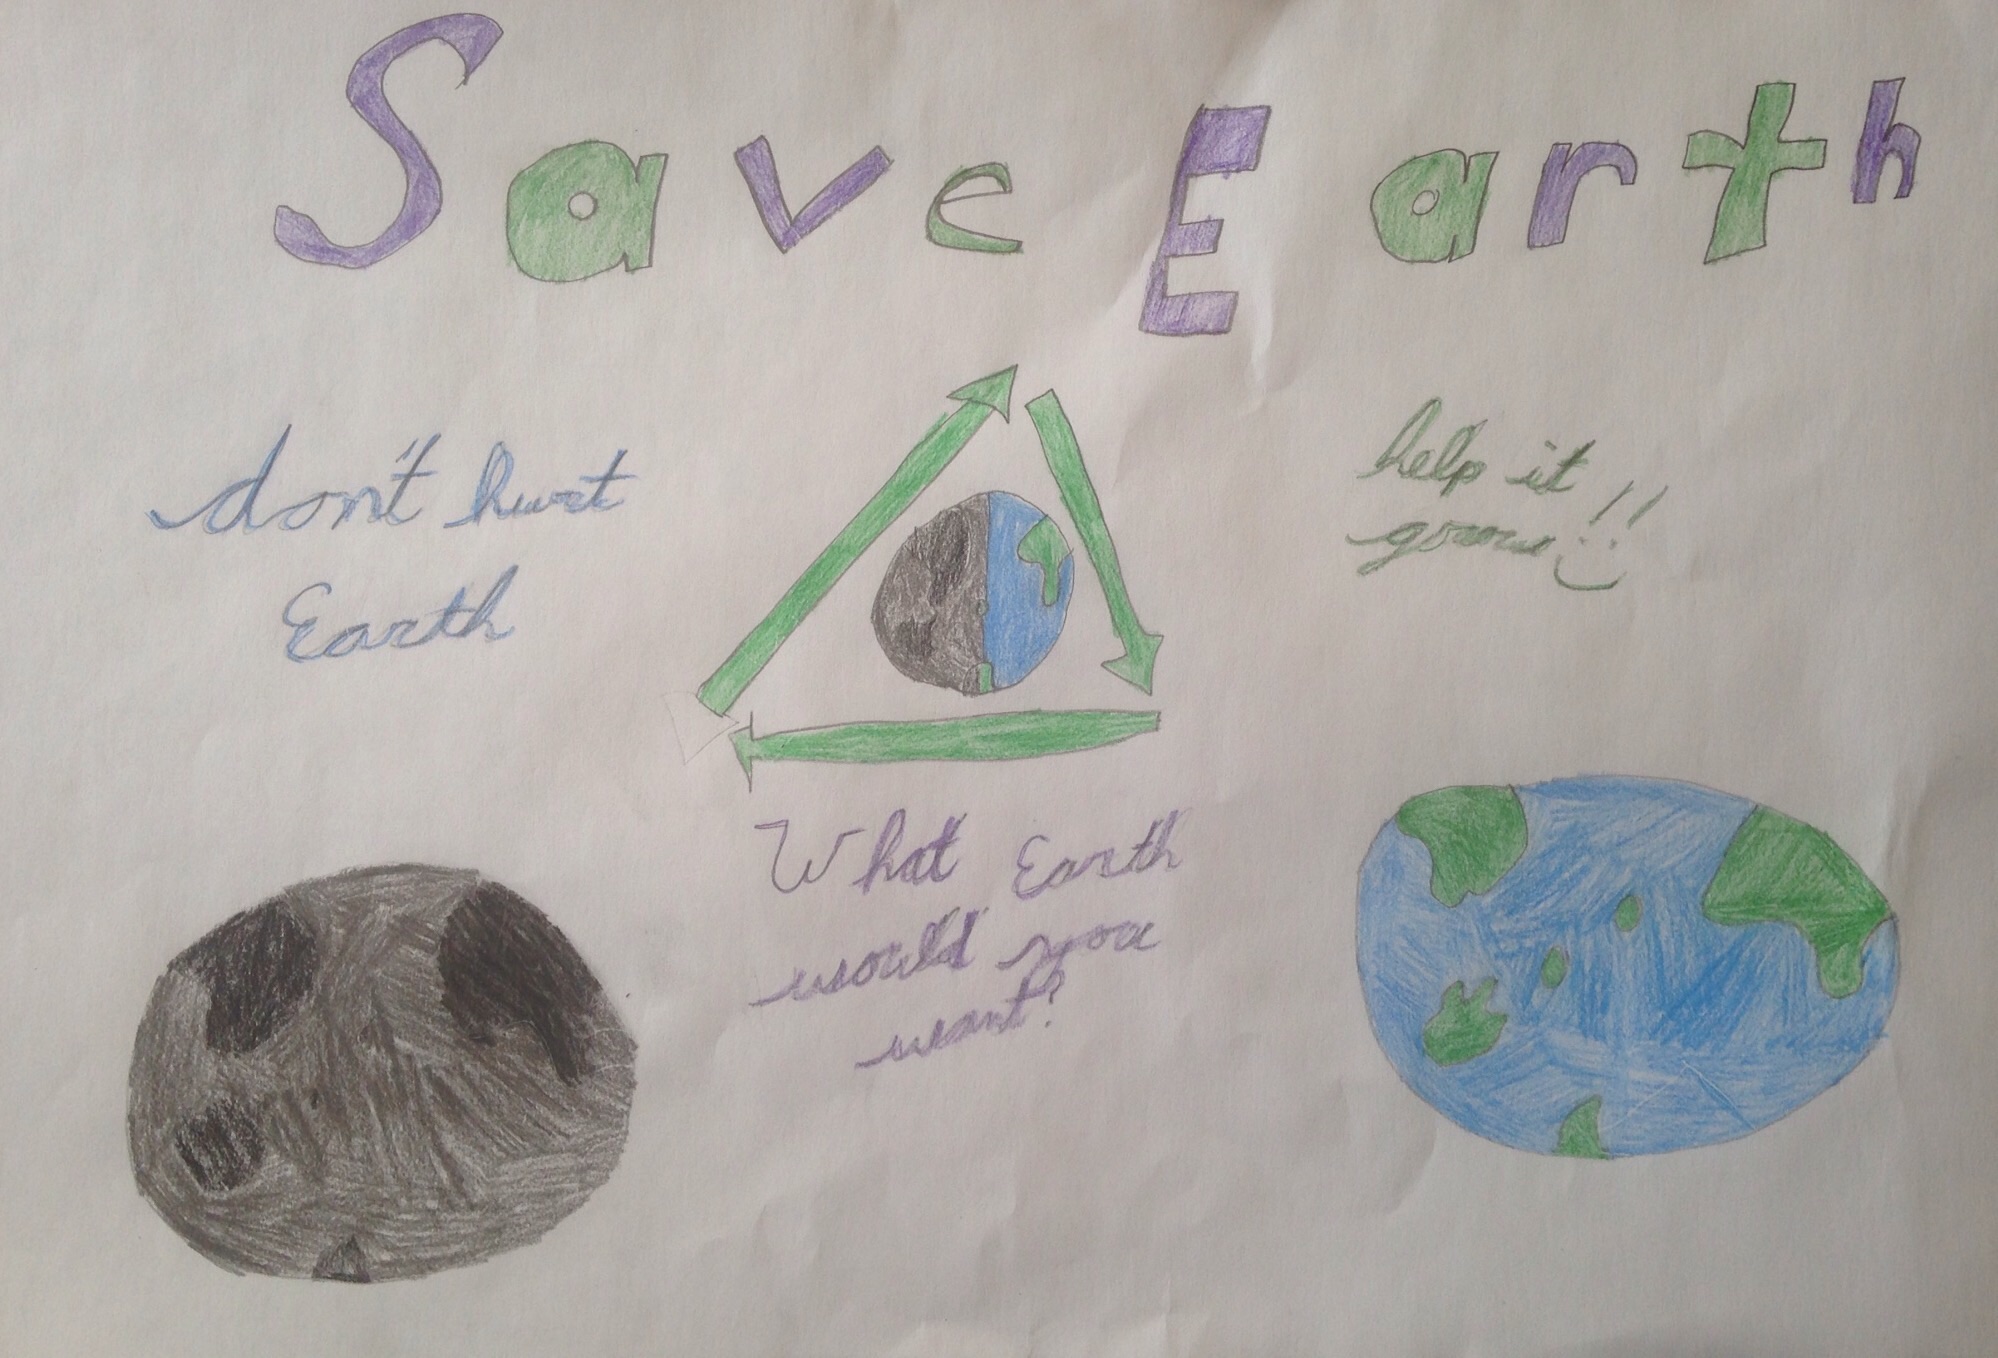 Save Earth
don't hurt
Earth
help it
grow!!
What Earth
would you
want?